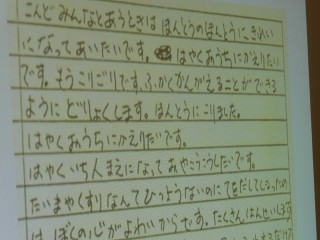 こんどみんなとあうときはほんとうのほんとうに、きれい
になってあいたいです。はやくおうちにかえりたい
です。もうこりごりです。ふかくかんがえることができる
ようにどりょくします。ほんとうにこりました。
はやくおうちにかえりたいです。
はやくいち人まえになっておやこうこうしたいです。
たいまやくすりなんてひつようないのにてをだしてしまったの
はぼくの心がよわいからです。たくさんはんせいします